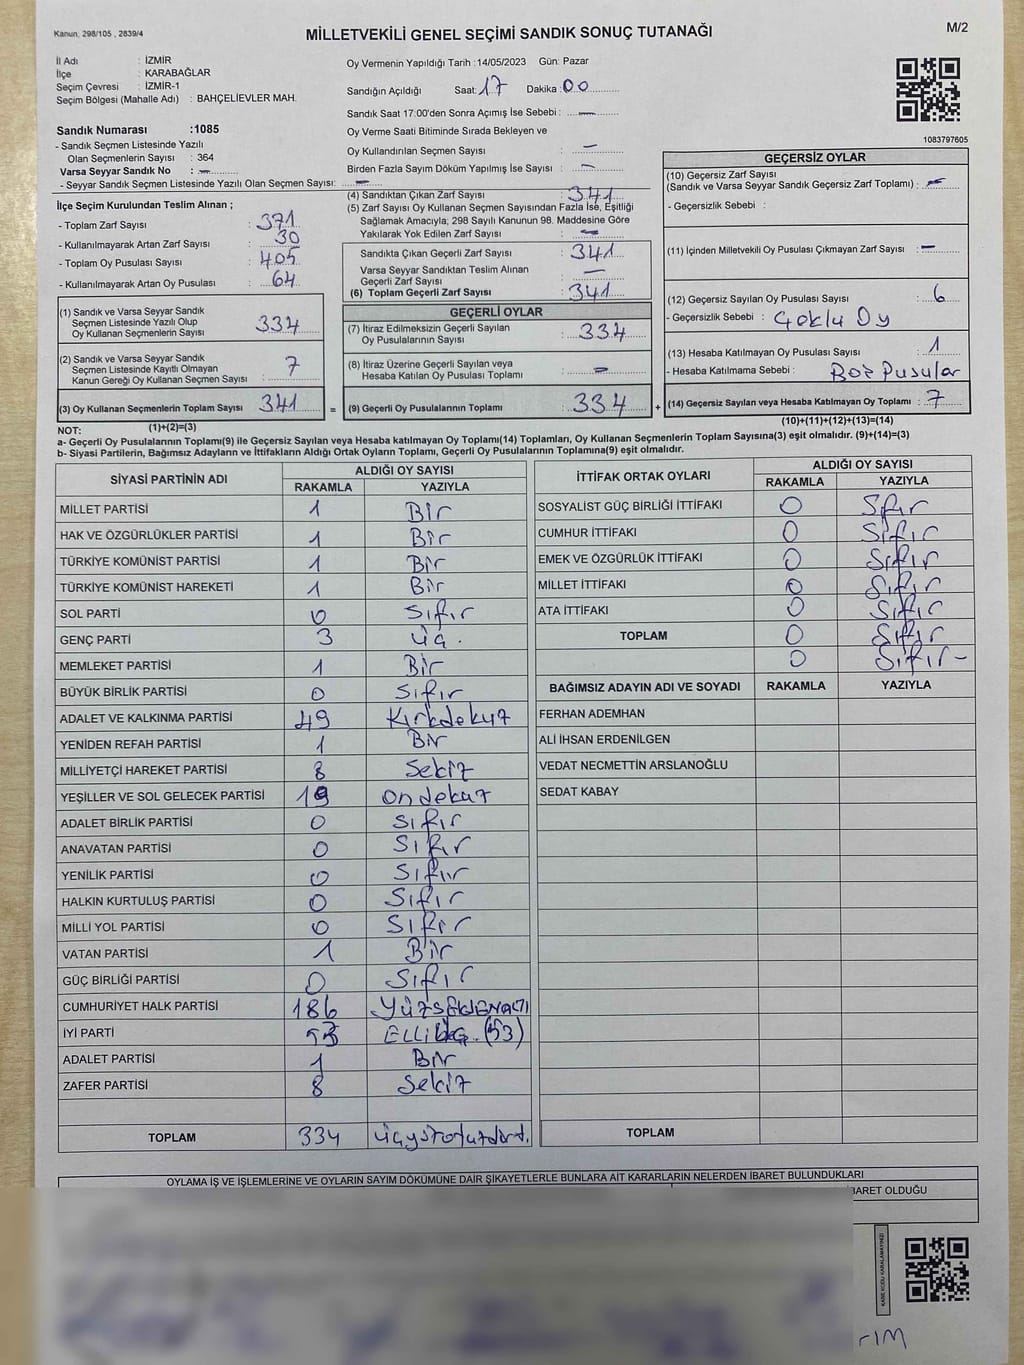 Kanun, 298/105 , 2839/4
MİLLETVEKİLİ GENEL SEÇİMİ SANDIK SONUÇ TUTANAĞI
M/2
İl Adı : İZMİR
İlçe : KARABAĞLAR
Seçim Çevresi : İZMİR-1
Seçim Bölgesi (Mahalle Adı) : BAHÇELİEVLER MAH.
Sandık Numarası :1085
- Sandık Seçmen Listesinde Yazılı
Olan Seçmenlerin Sayısı : 364
Varsa Seyyar Sandık No : -
- Seyyar Sandık Seçmen Listesinde Yazılı Olan Seçmen Sayısı: -
Oy Vermenin Yapıldığı Tarih :14/05/2023 Gün: Pazar
Sandığın Açıldığı Saat: 17 Dakika : 00
Sandık Saat 17:00'den Sonra Açımış İse Sebebi : -
Oy Verme Saati Bitiminde Sırada Bekleyen ve
Oy Kullandırılan Seçmen Sayısı : -
Birden Fazla Sayım Döküm Yapılmış İse Sayısı : -
1083797605
İlçe Seçim Kurulundan Teslim Alınan ;
- Toplam Zarf Sayısı : 371
- Kullanılmayarak Artan Zarf Sayısı : 30
- Toplam Oy Pusulası Sayısı : 405
- Kullanılmayarak Artan Oy Pusulası : 64
(1) Sandık ve Varsa Seyyar Sandık
Seçmen Listesinde Yazılı Olup
Oy Kullanan Seçmenlerin Sayısı : 334
(2) Sandık ve Varsa Seyyar Sandık
Seçmen Listesinde Kayıtlı Olmayan
Kanun Gereği Oy Kullanan Seçmen Sayısı : 7
(3) Oy Kullanan Seçmenlerin Toplam Sayısı 341 =
(4) Sandıktan Çıkan Zarf Sayısı : 341
(5) Zarf Sayısı Oy Kullanan Seçmen Sayısından Fazla İse, Eşitliği
Sağlamak Amacıyla; 298 Sayılı Kanunun 98. Maddesine Göre
Yakılarak Yok Edilen Zarf Sayısı : -
Sandıkta Çıkan Geçerli Zarf Sayısı : 341
Varsa Seyyar Sandıktan Teslim Alınan
Geçerli Zarf Sayısı : -
(6) Toplam Geçerli Zarf Sayısı : 341
GEÇERLİ OYLAR
(7) İtiraz Edilmeksizin Geçerli Sayılan
Oy Pusulalarının Sayısı : 334
(8) İtiraz Üzerine Geçerli Sayılan veya
Hesaba Katılan Oy Pusulası Toplamı : -
(9) Geçerli Oy Pusulalarının Toplamı : 334 +
GEÇERSİZ OYLAR
(10) Geçersiz Zarf Sayısı
(Sandık ve Varsa Seyyar Sandık Geçersiz Zarf Toplamı) : -
- Geçersizlik Sebebi :
(11) İçinden Milletvekili Oy Pusulası Çıkmayan Zarf Sayısı : -
(12) Geçersiz Sayılan Oy Pusulası Sayısı : 6
- Geçersizlik Sebebi : Çoklu Oy
(13) Hesaba Katılmayan Oy Pusulası Sayısı : 1
- Hesaba Katılmama Sebebi : Boş Pusular
(14) Geçersiz Sayılan veya Hesaba Katılmayan Oy Toplamı : 7
NOT: (1)+(2)=(3)
(10)+(11)+(12)+(13)=(14)
a- Geçerli Oy Pusulalarının Toplamı(9) ile Geçersiz Sayılan veya Hesaba katılmayan Oy Toplamı(14) Toplamları, Oy Kullanan Seçmenlerin Toplam Sayısına(3) eşit olmalıdır. (9)+(14)=(3)
b- Siyasi Partilerin, Bağımsız Adayların ve İttifakların Aldığı Ortak Oyların Toplamı, Geçerli Oy Pusulalarının Toplamına(9) eşit olmalıdır.
SİYASİ PARTİNİN ADI ALDIĞI OY SAYISI
RAKAMLA YAZIYLA
MİLLET PARTİSİ 1 Bir
HAK VE ÖZGÜRLÜKLER PARTİSİ 1 Bir
TÜRKİYE KOMÜNİST PARTİSİ 1 Bir
TÜRKİYE KOMÜNİST HAREKETİ 1 Bir
SOL PARTİ 0 Sıfır
GENÇ PARTİ 3 üç.
MEMLEKET PARTİSİ 1 Bir
BÜYÜK BİRLİK PARTİSİ 0 Sıfır
ADALET VE KALKINMA PARTİSİ 49 Kırkdokuz
YENİDEN REFAH PARTİSİ 1 Bir
MİLLİYETÇİ HAREKET PARTİSİ 8 Sekiz
YEŞİLLER VE SOL GELECEK PARTİSİ 19 Ondokuz
ADALET BİRLİK PARTİSİ 0 Sıfır
ANAVATAN PARTİSİ 0 Sıfır
YENİLİK PARTİSİ 0 Sıfır
HALKIN KURTULUŞ PARTİSİ 0 Sıfır
MİLLİ YOL PARTİSİ 0 Sıfır
VATAN PARTİSİ 1 Bir
GÜÇ BİRLİĞİ PARTİSİ 0 Sıfır
CUMHURİYET HALK PARTİSİ 186 YÜZSEKSENALTI
İYİ PARTİ 53 ELLİÜÇ. (53)
ADALET PARTİSİ 1 Bir
ZAFER PARTİSİ 8 Sekiz
TOPLAM 334 üçyüzotuzdört.
İTTİFAK ORTAK OYLARI ALDIĞI OY SAYISI
RAKAMLA YAZIYLA
SOSYALİST GÜÇ BİRLİĞİ İTTİFAKI 0 Sıfır
CUMHUR İTTİFAKI 0 Sıfır
EMEK VE ÖZGÜRLÜK İTTİFAKI 0 Sıfır
MİLLET İTTİFAKI 0 Sıfır
ATA İTTİFAKI 0 Sıfır
TOPLAM 0 Sıfır
0 Sıfır-
BAĞIMSIZ ADAYIN ADI VE SOYADI RAKAMLA YAZIYLA
FERHAN ADEMHAN
ALİ İHSAN ERDENİLGEN
VEDAT NECMETTİN ARSLANOĞLU
SEDAT KABAY
TOPLAM
OYLAMA İŞ VE İŞLEMLERİNE VE OYLARIN SAYIM DÖKÜMÜNE DAİR ŞİKAYETLERLE BUNLARA AİT KARARLARIN NELERDEN İBARET BULUNDUKLARI
İBARET OLDUĞU
KARE KODU KARALAMAYINIZ!